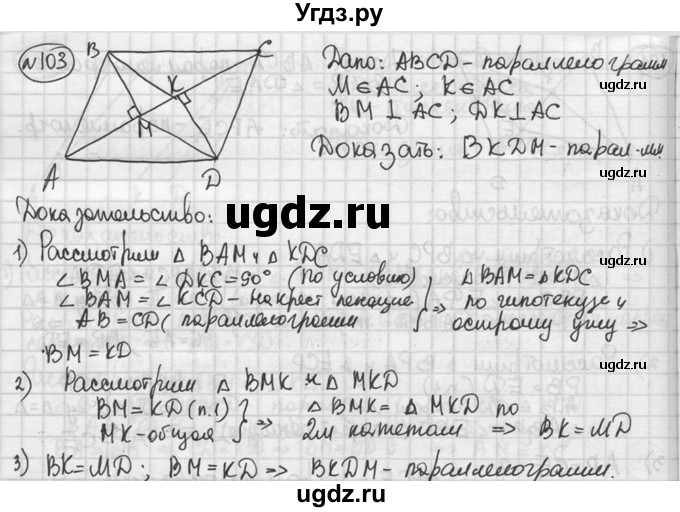 Угдз.ру
№103
B
C
K
M
A
D
Дано: ABCD - параллелограмм
M∈AC; K∈AC
BM⊥AC; DK⊥AC
Доказать: BKDM - парал-мм
Доказательство:
ugdz.ru
1) Рассмотрим △ BAM и △ KDC
∠BMA = ∠DKC = 90° (по условию)
∠BAM = ∠KCD - накрест лежащие
AB = CD (параллелограмм
} ⇒ △ BAM = △ KDC
по гипотенузе и
острому углу ⇒
BM = KD
2) Рассмотрим △ BMK и △ MKD
BM = KD (п.1)
MK - общая
} ⇒ △ BMK = △ MKD по
2м катетам ⇒ BK = MD
3) BK = MD; BM = KD ⇒ BKDM - параллелограмм.
ugdz.ru
ugdz.ru
ugdz.ru
ugdz.ru
ugdz.ru
ugdz.ru
ugdz.ru